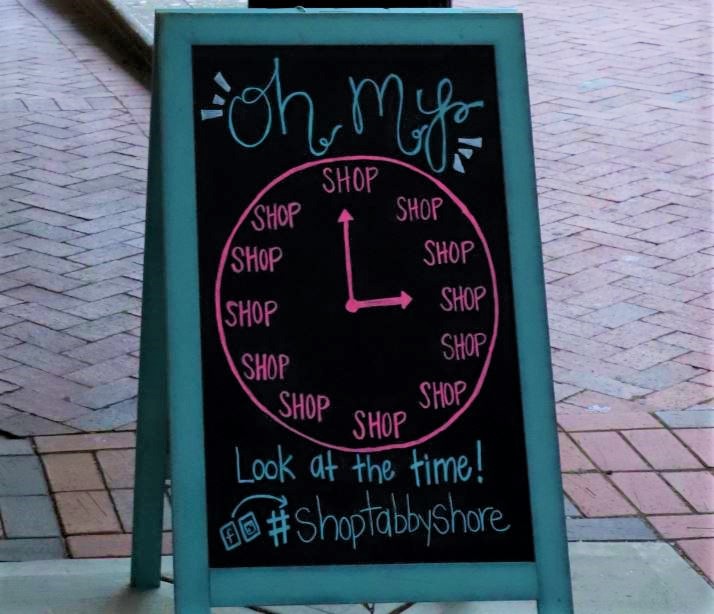 Oh My
SHOP
SHOP
SHOP
SHOP
SHOP
SHOP
SHOP
SHOP
SHOP
SHOP
SHOP
SHOP
Look at the time!
f #Shoptabbyshore